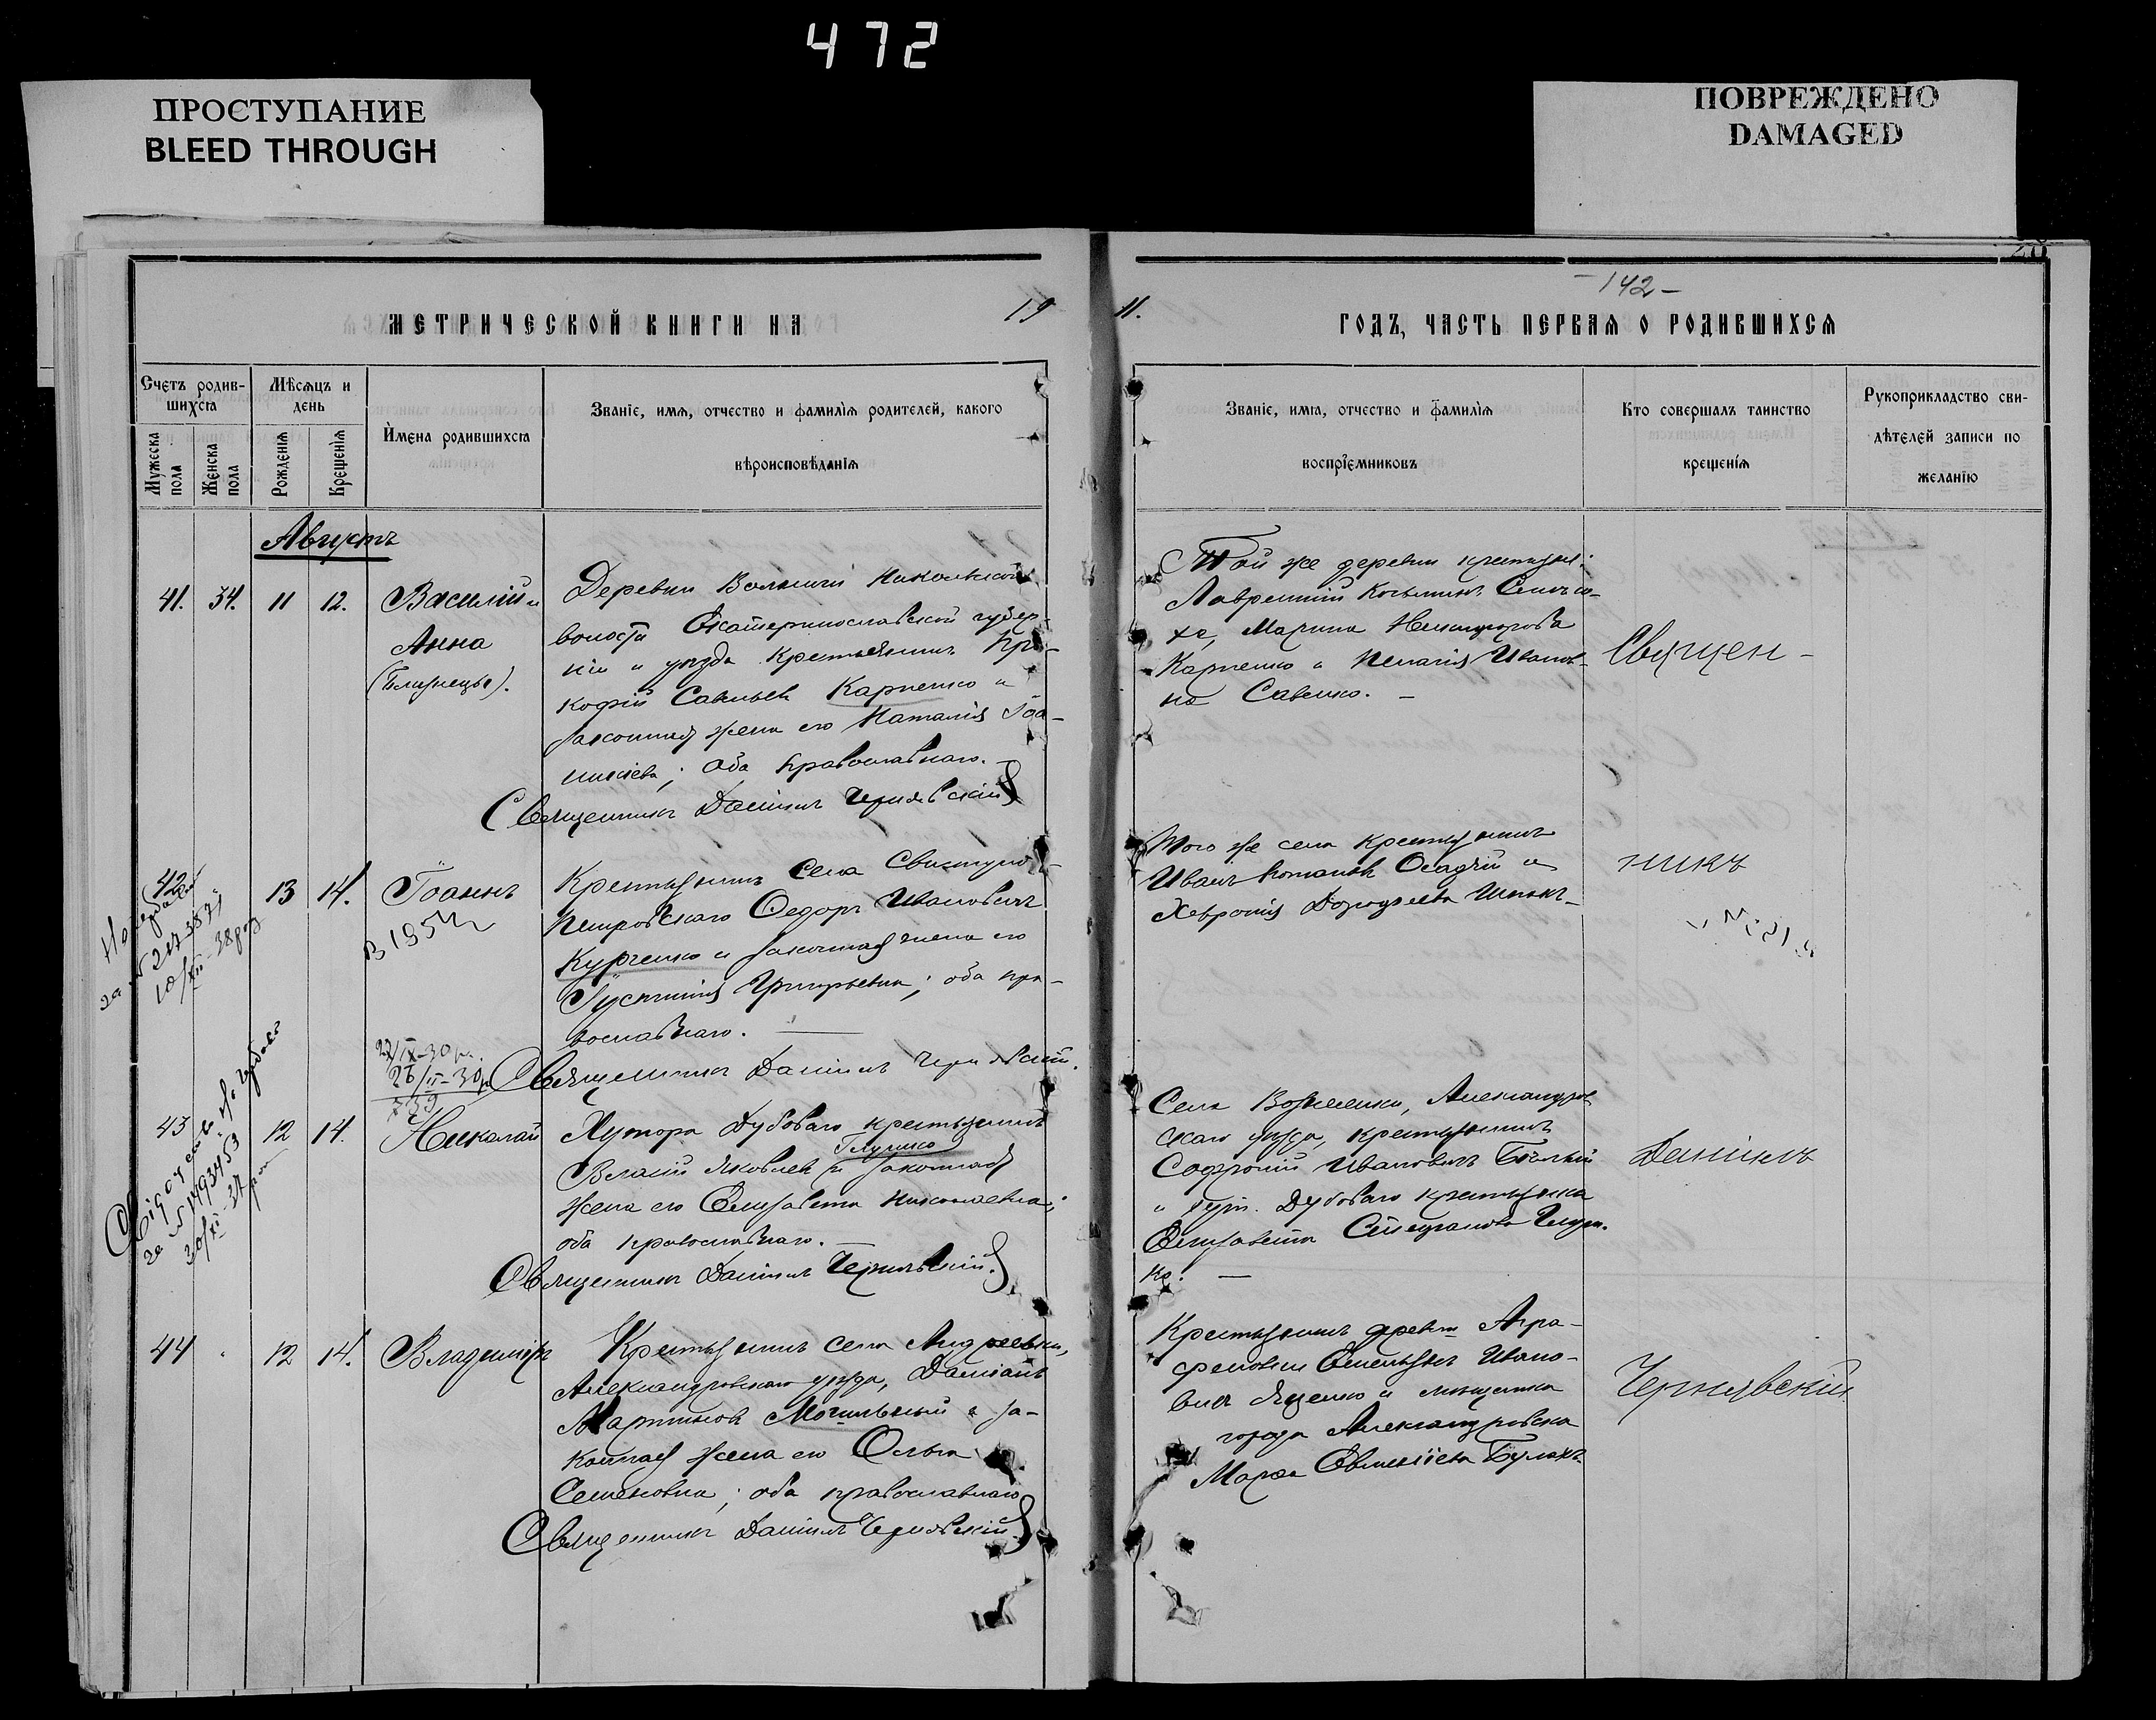 472
ПРОСТУПАНИЕ
BLEED THROUGH
ПОВРЕЖДЕНО
DAMAGED
28
-142-
МЕТРИЧЕСКОЙ КНИГИ НА 19
11. ГОДЪ, ЧАСТЬ ПЕРВАЯ О РОДИВШИХСЯ
Счетъ родив-
шихся
Мужеска пола
Женска пола
Мѣсяцъ и
день
Рожденія
Крещенія
Имена родившихся
Званіе, имя, отчество и фамилія родителей, какого
вѣроисповѣданія
Званіе, имя, отчество и фамилія
воспріемниковъ
Кто совершалъ таинство
крещенія
Рукоприкладство сви-
дѣтелей записи по
желанію
Августъ
41. 34. 11 12. Василій и
Анна
(Близнецы).
Деревни Вольной Никольской
волости Екатеринославской губер-
ніи и уѣзда крестьянинъ Про-
кофій Савельевъ Карпенко и
законная жена его Наталія Іоа-
никіева; оба православнаго.
Священникъ Даніилъ Чернявскій
Той же деревни крестьяне:
Лаврентій Косьминъ
Марина Никифорова
Карпенко и Пелагія Иванов-
на Савенко. -
Священ-
42 13 14. Іоаннъ
Крестьянинъ села Свистуно-
Петровскаго Ѳедоръ Ивановичъ
Курченко и законная жена его
Іустинія Григорьевна; оба пра-
вославнаго.
Священникъ Даніилъ Чернявскій.
Того же села крестьянинъ
Иванъ Романовъ Осадчій и
Хевронія Дороѳеева
никъ
22/IX-30 р.
26/II-30 р
43 12 14. Николай
Хутора Дубоваго крестьянинъ
Глушко
Власій Яковлев и законная
жена его Елизавета Николаевна;
оба православнаго. -
Священникъ Даніилъ Чернявскій.
20/XI-37
Села Вознесенки, Александров-
скаго уѣзда, крестьянинъ
Софроній Ивановичъ Бѣлый
и хут. Дубоваго крестьянка
Елизавета Стефанова Глуш-
ко. -
Даніилъ
44 12 14. Владиміръ
Крестьянинъ села Андреевки,
Александровскаго уѣзда, Даміанъ
Мартиновъ Могильный и за-
конная жена его Ольга
Семеновна; оба православнаго
Священникъ Даніилъ Чернявскій
Крестьянинъ деревни Агра-
феновки Емельянъ Ивано-
вичъ Яценко и мѣщанка
города Александровска
Марѳа Евменіева Булахъ
Чернявскій.